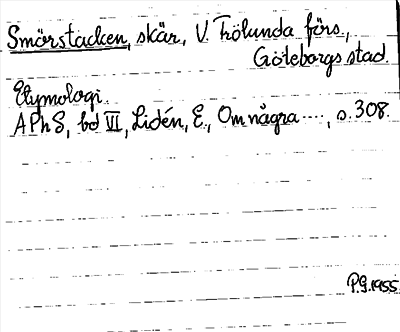 Smörstacken, skär, V. Frölunda förs.,
Göteborgs stad.
Etymologi.
APhS, bd VI, Lidén, E., Om några ...., s. 308.
P.G. 1955